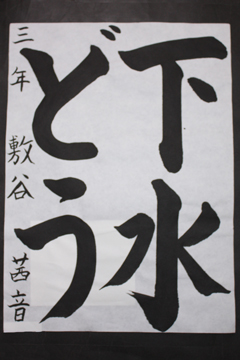 下水
どう
三年 敷谷 茜音